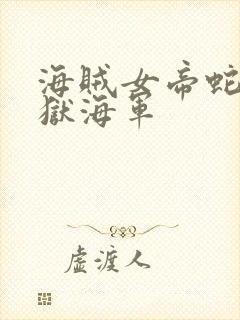 海賊女帝蛇
獄海軍
虛渡人